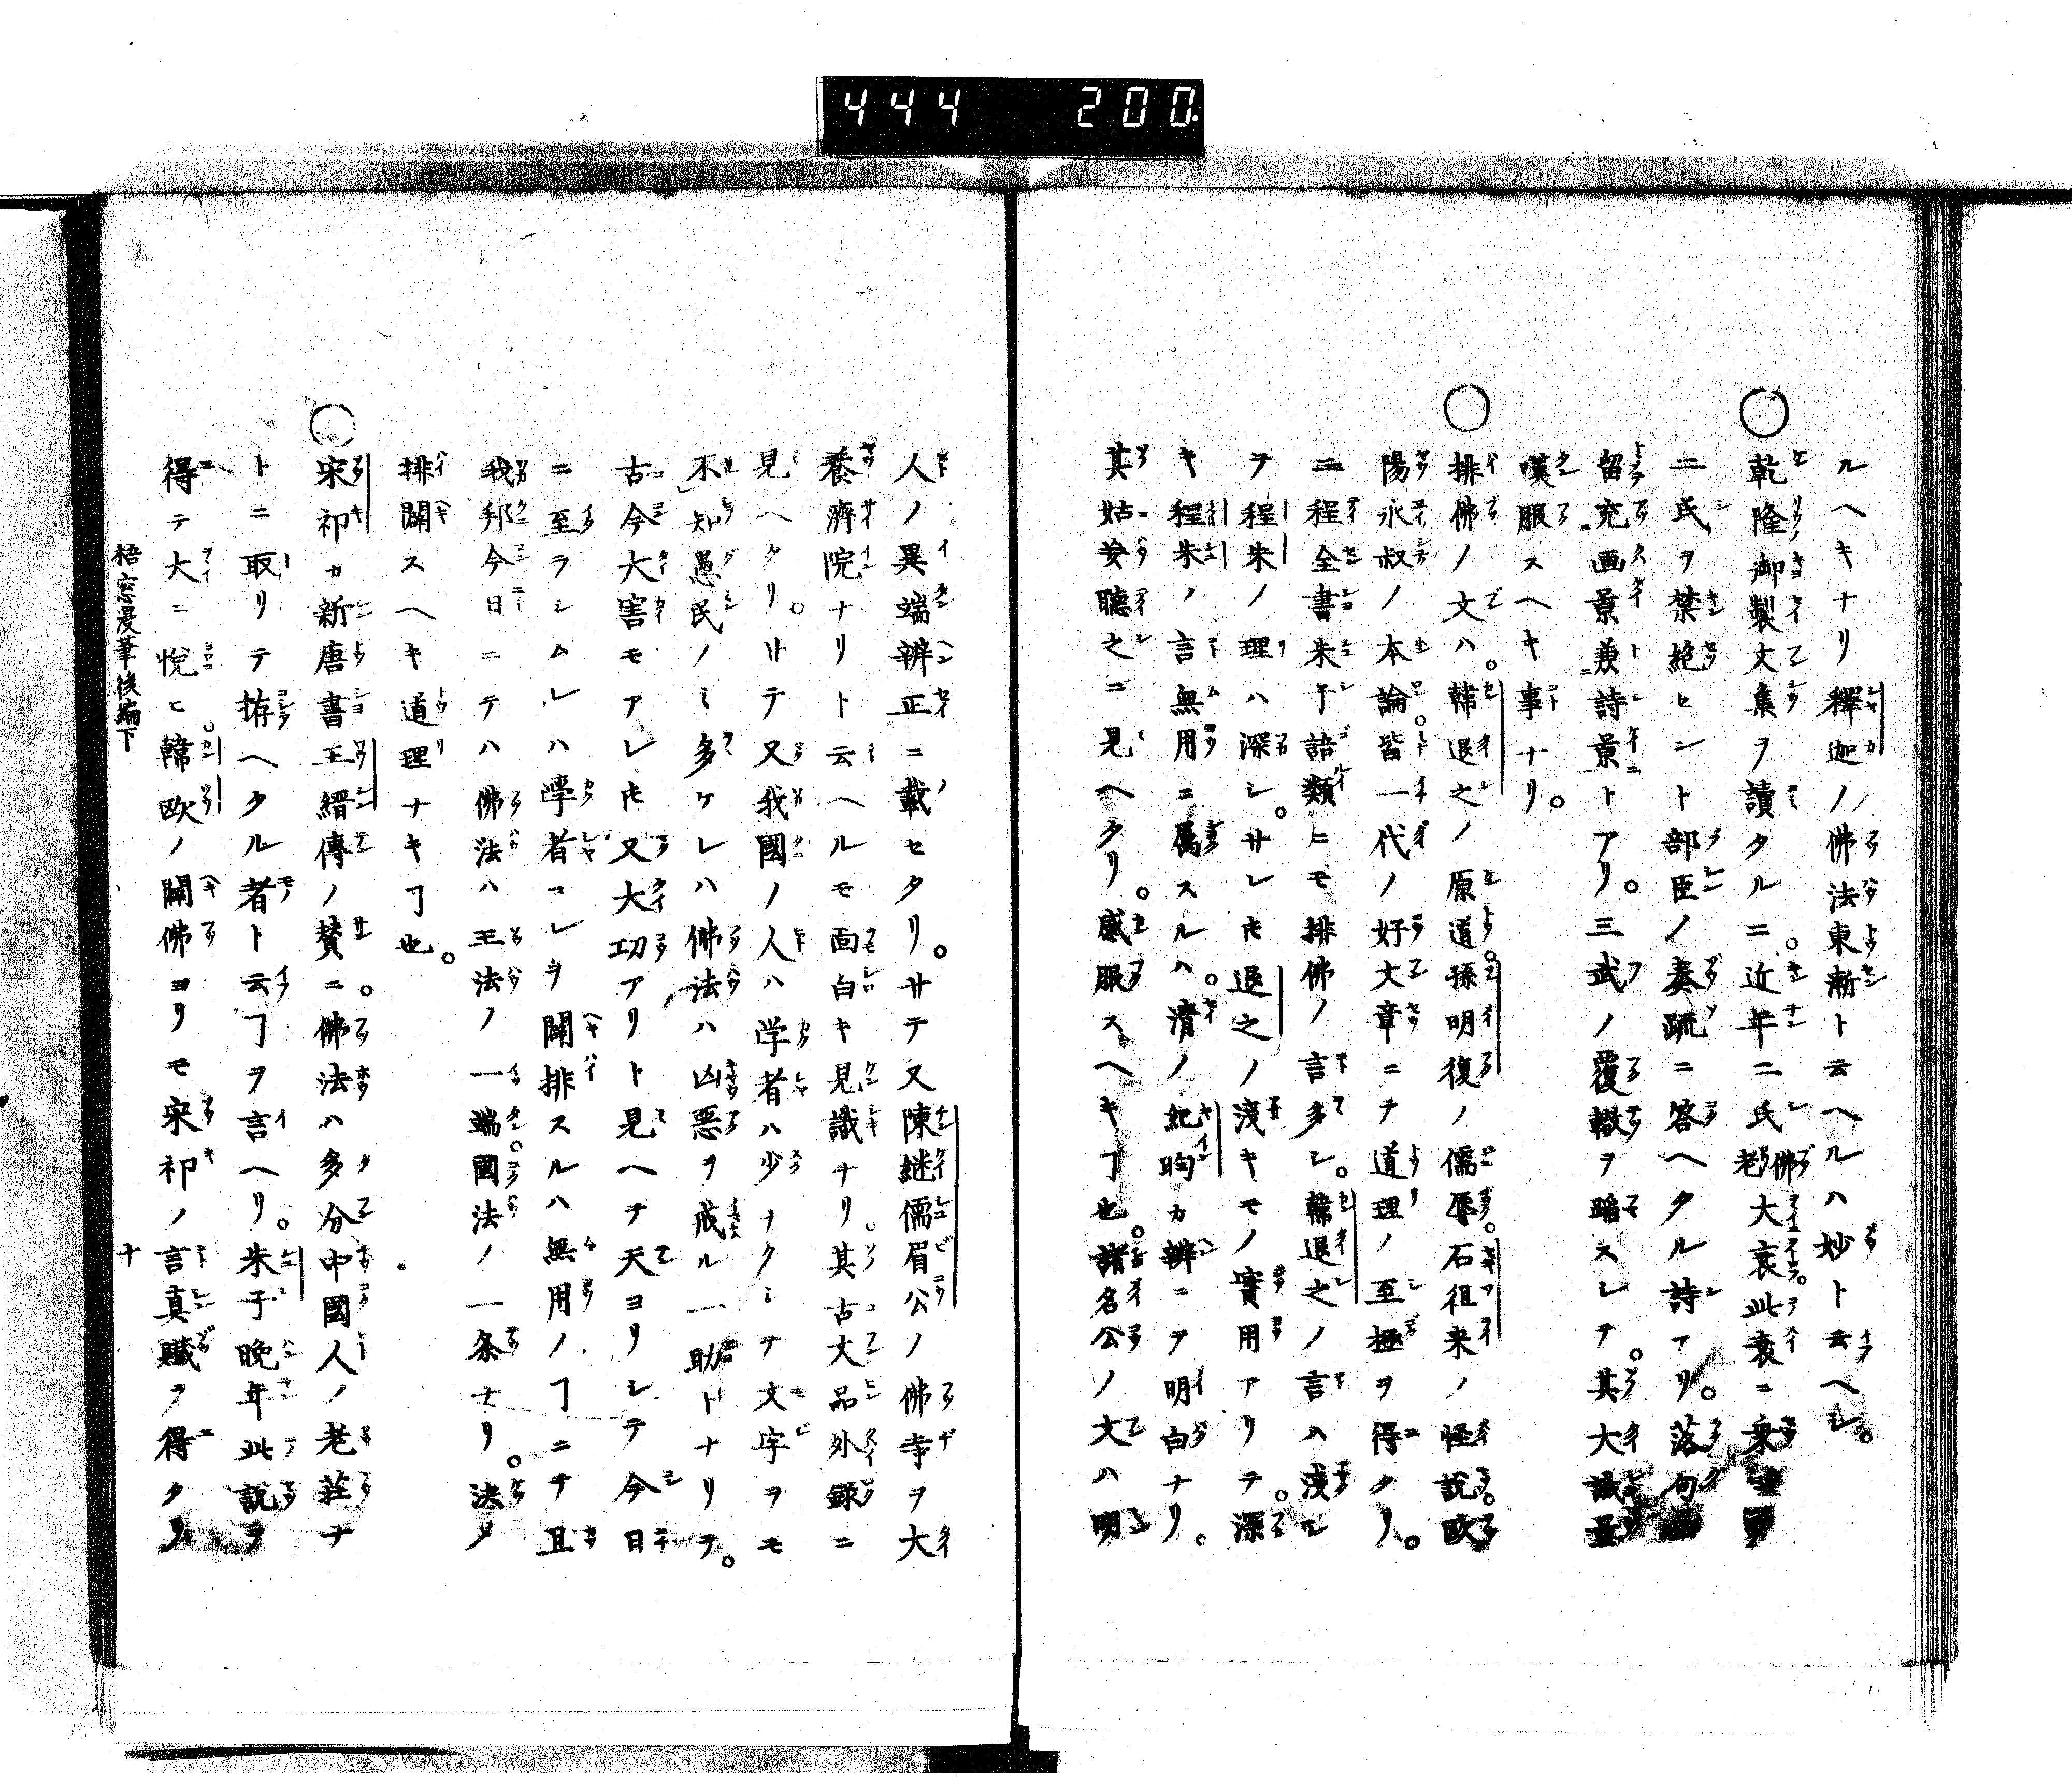 444 200.
ルヘキナリ釋迦ノ佛法東漸ト云ヘルハ妙ト云ヘシ。
○乾隆御製文集ヲ讀タルニ。近年二氏佛老大衰。此衰ニ乗
二氏ヲ禁絶セント部臣ノ奏疏ニ答ヘタル詩アリ。落句
留充画景兼詩景トアリ。三武ノ覆轍ヲ蹈スレテ。其大識量
嘆服スヘキ事ナリ。
○排佛ノ文ハ。韓退之ノ原道。孫明復ノ儒辱。石徂来ノ怪説。歐
陽永叔ノ本論。皆一代ノ好文章ニテ道理ノ至極ヲ得タリ。
二程全書朱子語類ニモ排佛ノ言多シ。韓退之ノ言ハ淺シ
ヲ程朱ノ理ハ深シ。サレ𪜈退之ノ淺キモノ實用アリテ。深
キ程朱ノ言無用ニ属スルハ。清ノ紀昀カ辨ニテ明白ナリ。
其姑妄聽之ニ見ヘタリ。感服スヘキヿ也。諸名公ノ文ハ明
人ノ異端辨正ニ載セタリ。サテ又陳継儒眉公ノ佛寺ヲ大
養濟院ナリト云ヘルモ面白キ見識ナリ。其古文品外録ニ
見ヘタリ。サテ又我國ノ人ハ学者ハ少ナクシテ文字ヲモ
不知愚民ノミ多ケレハ佛法ハ凶惡ヲ戒ル一助トナリテ。
古今大害モアレ𪜈又大功アリト見ヘテ天ヨリシテ今日
ニ至ラシムレハ學者コレヲ闢排スルハ無用ノヿニテ且
我邦今日ニテハ佛法ハ王法ノ一端。國法ノ一条ナリ。決タ
排闢スヘキ道理ナキヿ也。
○宋祁カ新唐書王縉傳ノ賛ニ。佛法ハ多分中國人ノ老荘ナ
トニ取リテ拵ヘタル者ト云ヿヲ言ヘリ。朱子晩年此説ヲ
得テ大ニ悅ヒ。韓歐ノ闢佛ヨリモ宋祁ノ言真贓ヲ得タリ
梧窓漫筆後編下 十